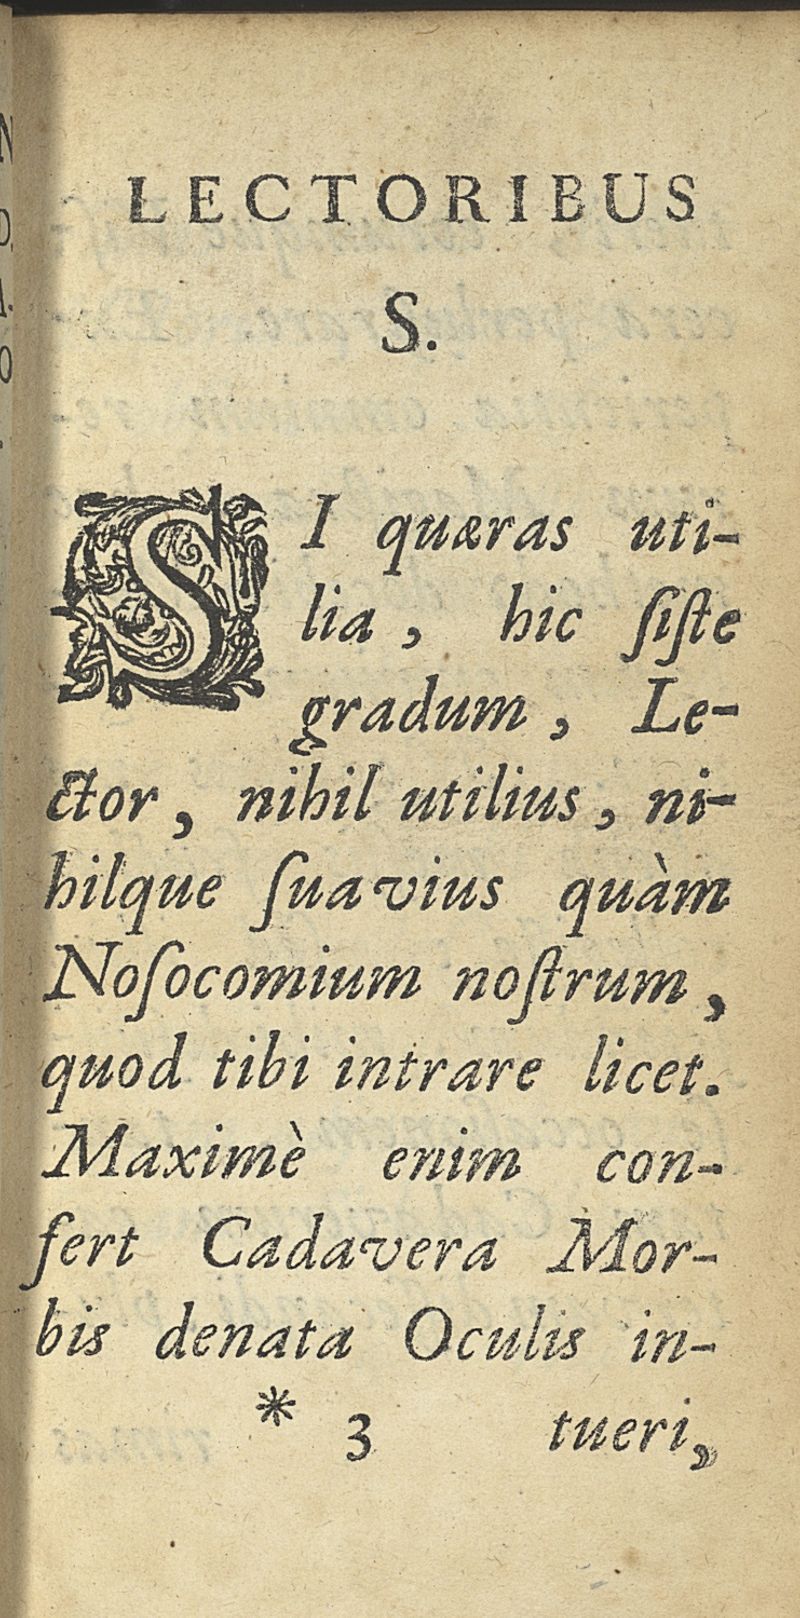 LECTORIBUS
S.
SI quæras uti-
lia, hic ſiſte
gradum, Le-
ctor, nihil utilius, ni-
hilque ſuavius quàm
Noſocomium noſtrum,
quod tibi intrare licet.
Maximè enim con-
fert Cadavera Mor-
bis denata Oculis in-
* 3 tueri,